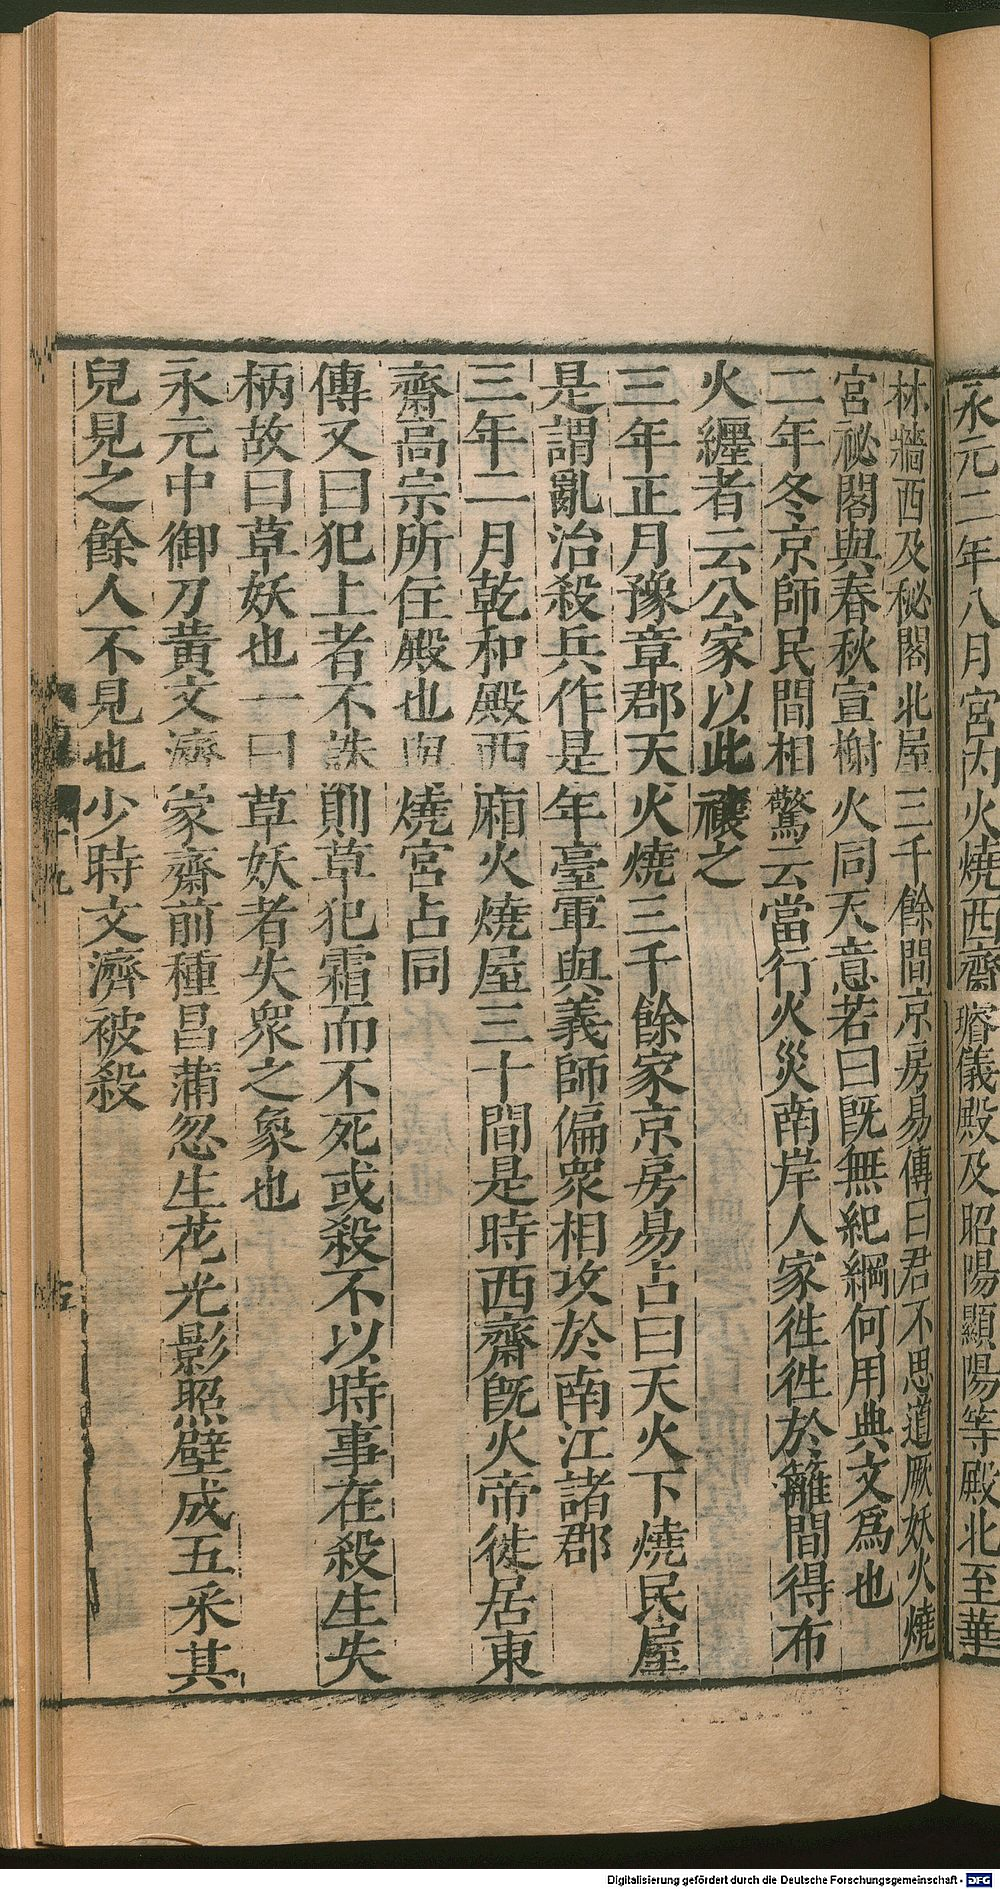 永元二年八月宮內火燒西齋璿儀殿及昭陽顯陽等殿北至華
林牆西及秘閣北屋三千餘間京房易傳曰君不思道厥妖火燒
宮祕閣與春秋宣榭火同天意若曰旣無紀綱何用典文爲也
二年冬京師民間相驚云當行火災南岸人家徃徃於籬間得布
火纏者云公家以此禳之
三年正月豫章郡天火燒三千餘家京房易占曰天火下燒民屋
是謂亂治殺兵作是年臺軍與義師偏衆相攻於南江諸郡
三年二月乾和殿西廂火燒屋三十間是時西齋旣火帝徙居東
齋高宗所住殿也與燒宮占同
傳又曰犯上者不誅則草犯霜而不死或殺不以時事在殺生失
柄故曰草妖也一曰草妖者失衆之象也
永元中御刀黃文濟家齋前種昌蒲忽生花光影照壁成五采其
兒見之餘人不見也少時文濟被殺
十九
Digitalisierung gefördert durch die Deutsche Forschungsgemeinschaft - DFG